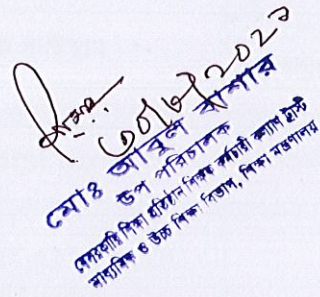 ৩০/৮/২০২১
মোঃ আবুল বাশার
উপ পরিচালক
বেসরকারি শিক্ষা প্রতিষ্ঠান শিক্ষক কর্মচারী কল্যাণ ট্রাস্ট
মাধ্যমিক ও উচ্চ শিক্ষা বিভাগ, শিক্ষা মন্ত্রণালয়